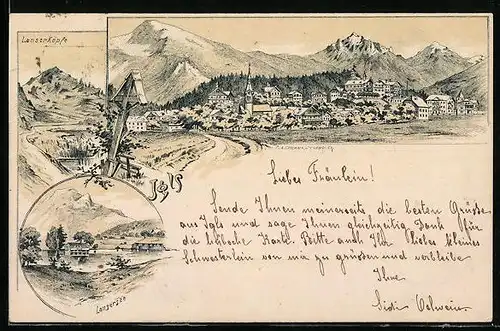 Lanserköpfe
Igls
Lansersee
Liebes Fräulein!
Sende Ihnen meinerseits die besten Grüsse
aus Igls und sage Ihnen gleichzeitig Dank für
die hübsche Karte. Bitte auch Ihr liebes kleines
Schwesterlein von mir zu grüssen und verbleibe
Ihre
Sidi